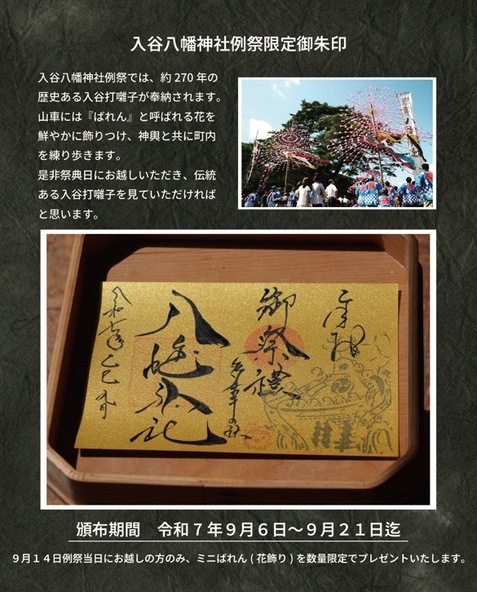 入谷八幡神社例祭限定御朱印
入谷八幡神社例祭では、約 270 年の
歴史ある入谷打囃子が奉納されます。
山車には『ばれん』と呼ばれる花を
鮮やかに飾りつけ、神輿と共に町内
を練り歩きます。
是非祭典日にお越しいただき、伝統
ある入谷打囃子を見ていただければ
と思います。
奉拝
御祭禮
八幡神社
頒布期間　令和７年９月６日～９月２１日迄
９月１４日例祭当日にお越しの方のみ、ミニばれん ( 花飾り ) を数量限定でプレゼントいたします。